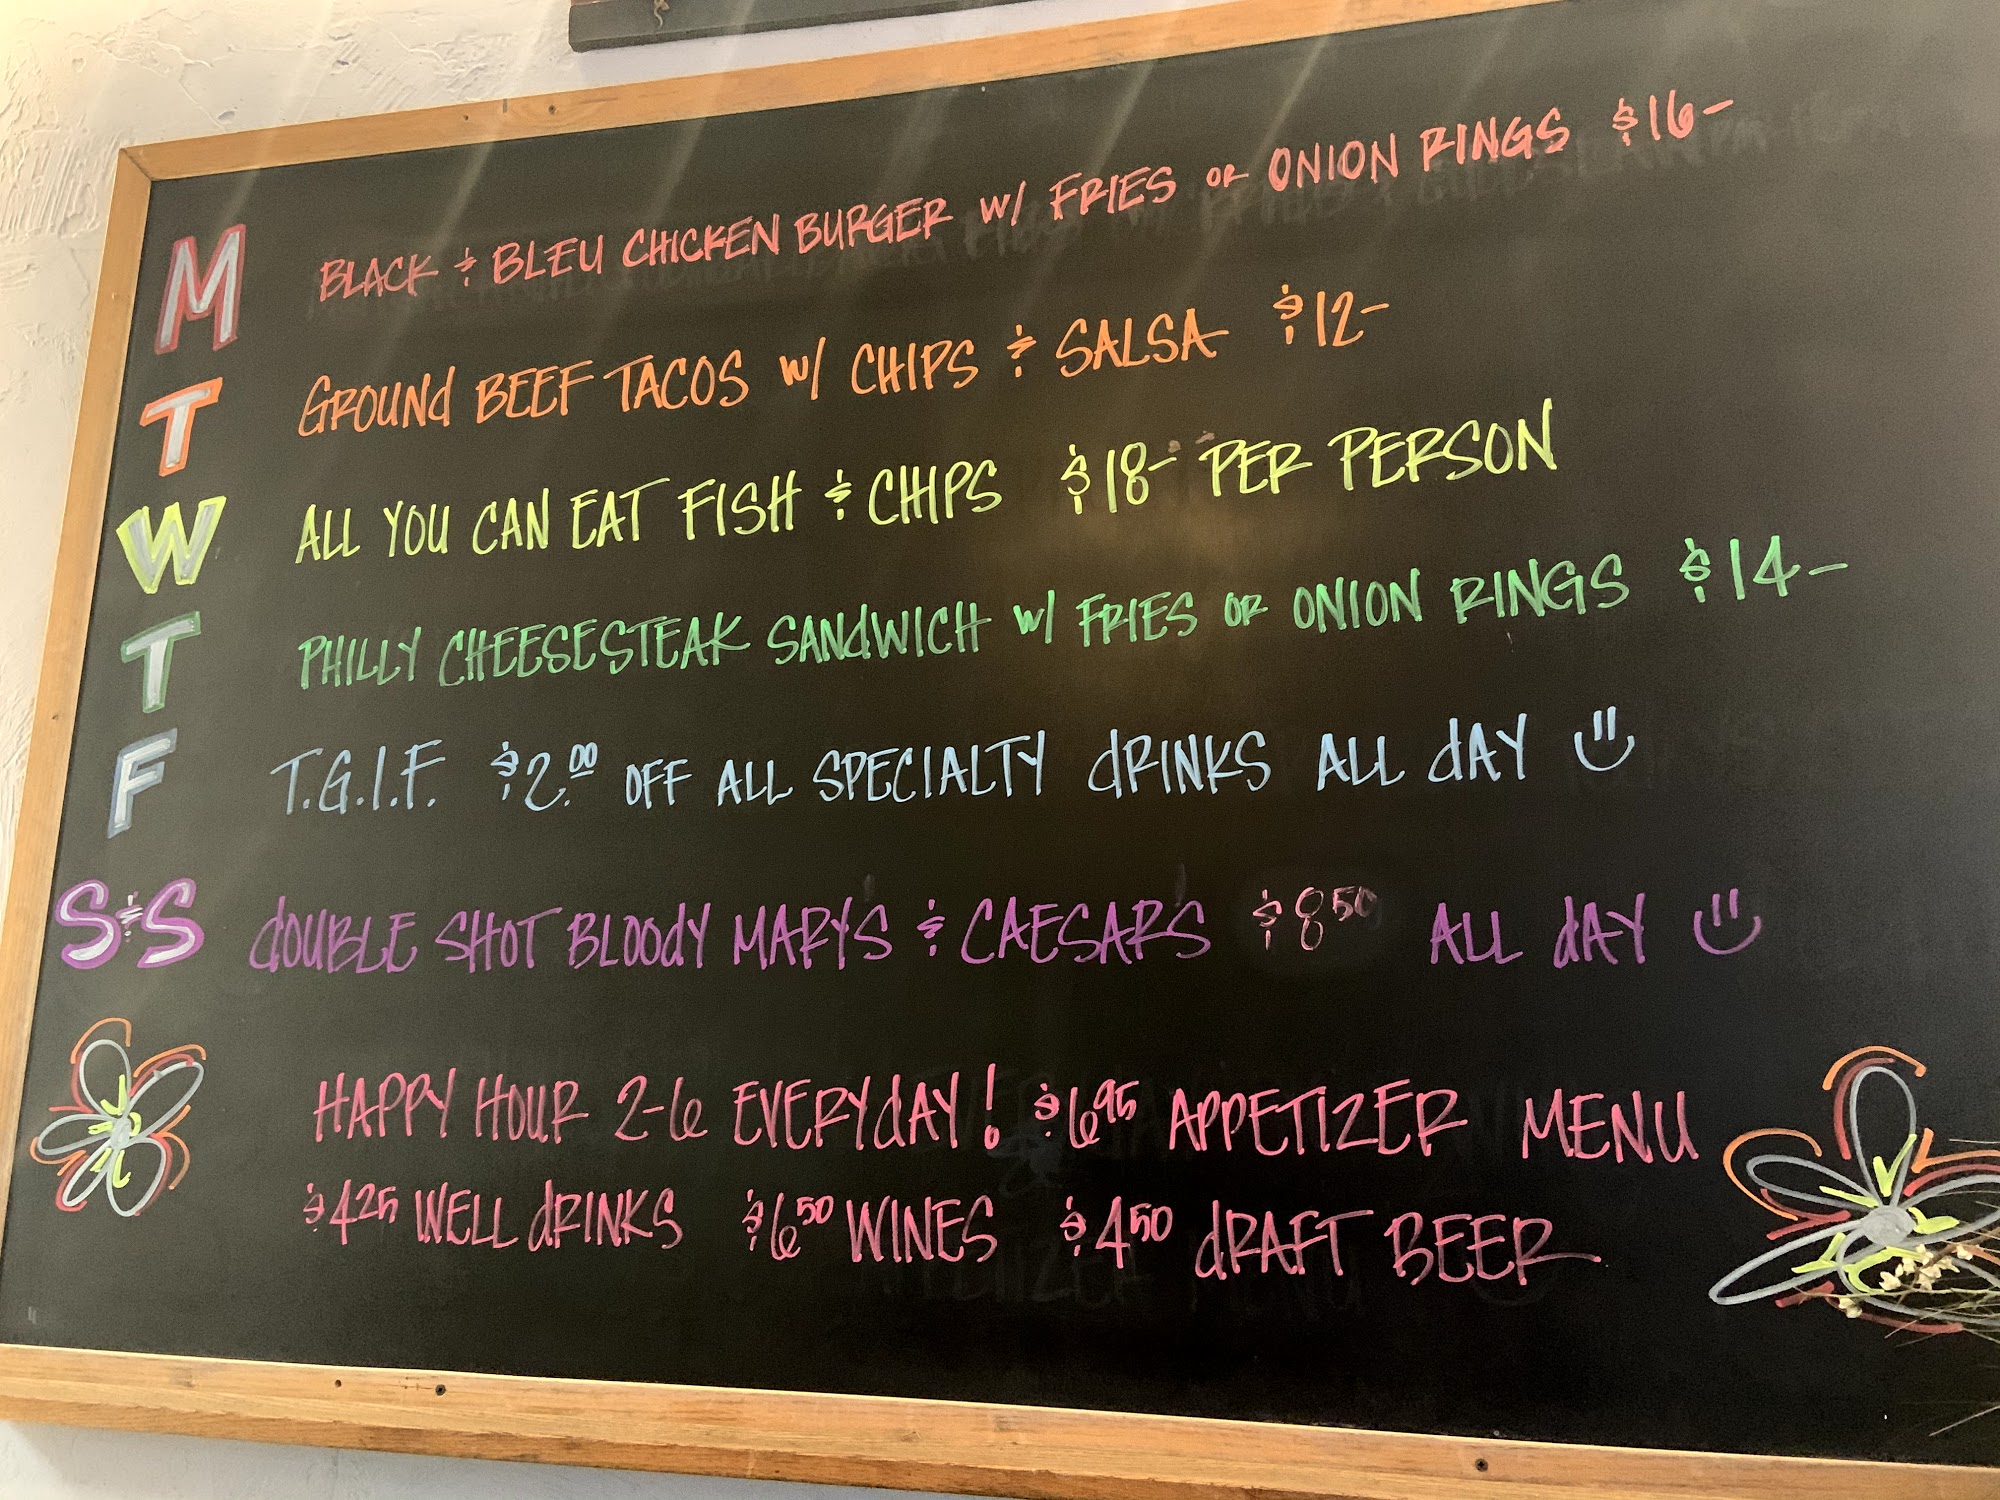 M BLACK & BLEU CHICKEN BURGER W/ FRIES OR ONION RINGS $16-
T GROUND BEEF TACOS W/ CHIPS & SALSA $12-
W ALL YOU CAN EAT FISH & CHIPS $18- PER PERSON
T PHILLY CHEESESTEAK SANDWICH W/ FRIES OR ONION RINGS $14-
F T.G.I.F. $2.00 OFF ALL SPECIALTY DRINKS ALL DAY
S&S DOUBLE SHOT BLOODY MARY'S & CAESAR'S $850 ALL DAY
HAPPY HOUR 2-6 EVERYDAY! $695 APPETIZER MENU
$425 WELL DRINKS $650 WINES $450 DRAFT BEER